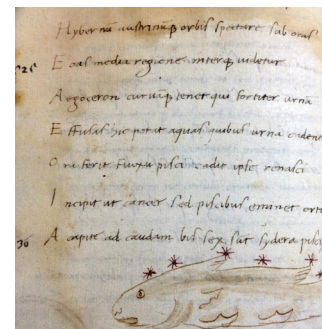 Hybernũ austrinũqꝫ orbis spectare sub oras
525 Eoas media regione interqꝫ videtur
Aegoceron curuũqꝫ tenet qui fortiter urnã
Effusas hic potat aquas quibus urna
Ora ferit fluxu pisci cadit ipse renasci
Incipit ut cancer sed piscibus eminet
30 A capite ad caudam bis sex sũt sydera